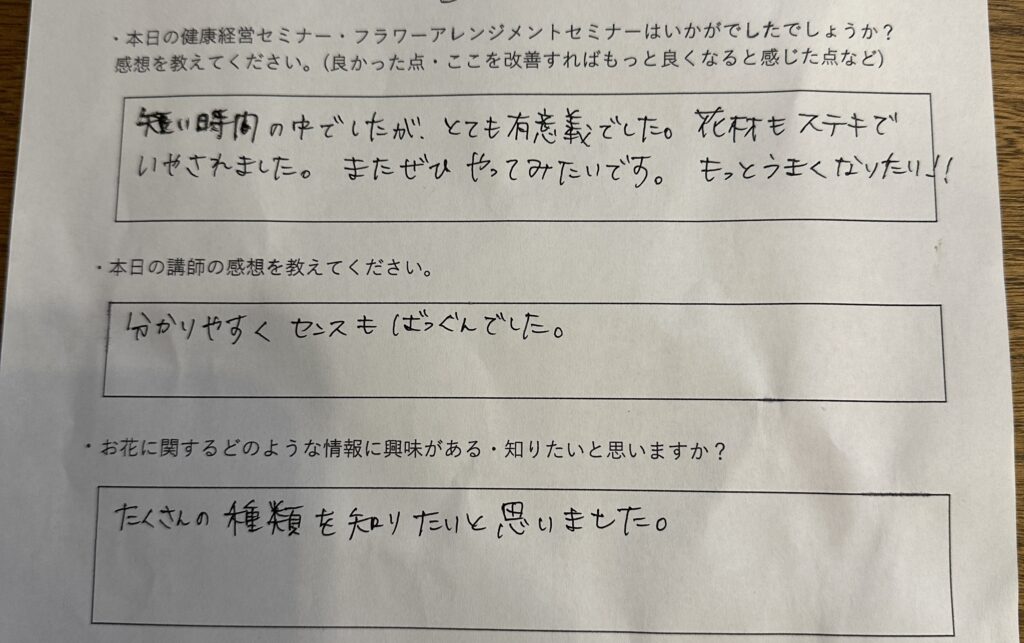 ・本日の健康経営セミナー・フラワーアレンジメントセミナーはいかがでしたでしょうか？
感想を教えてください。(良かった点・ここを改善すればもっと良くなると感じた点など)
短い時間の中でしたが、とても有意義でした。花材もステキで
いやされました。またぜひやってみたいです。もっとうまくなりたい!!
・本日の講師の感想を教えてください。
分かりやすくセンスもばつぐんでした。
・お花に関するどのような情報に興味がある・知りたいと思いますか？
たくさんの種類を知りたいと思いました。